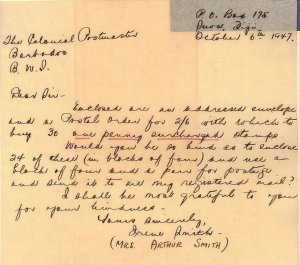 P.O. Box 175
Suva, Fiji
October 6th 1947.
The Colonial Postmaster
Barbados
B.W.I.
Dear Sir -
Enclosed are an addressed envelope
and a Postal Order for 2/6 with which to
buy 30 one penny surcharged stamps
Would you be so kind as to enclose
24 of these (in blocks of four) and use a
block of four and a pair for postage
and send it to me by registered mail?
I shall be most grateful to you
for your kindness -
Yours sincerely,
Irene Smith -
(MRS. ARTHUR SMITH)